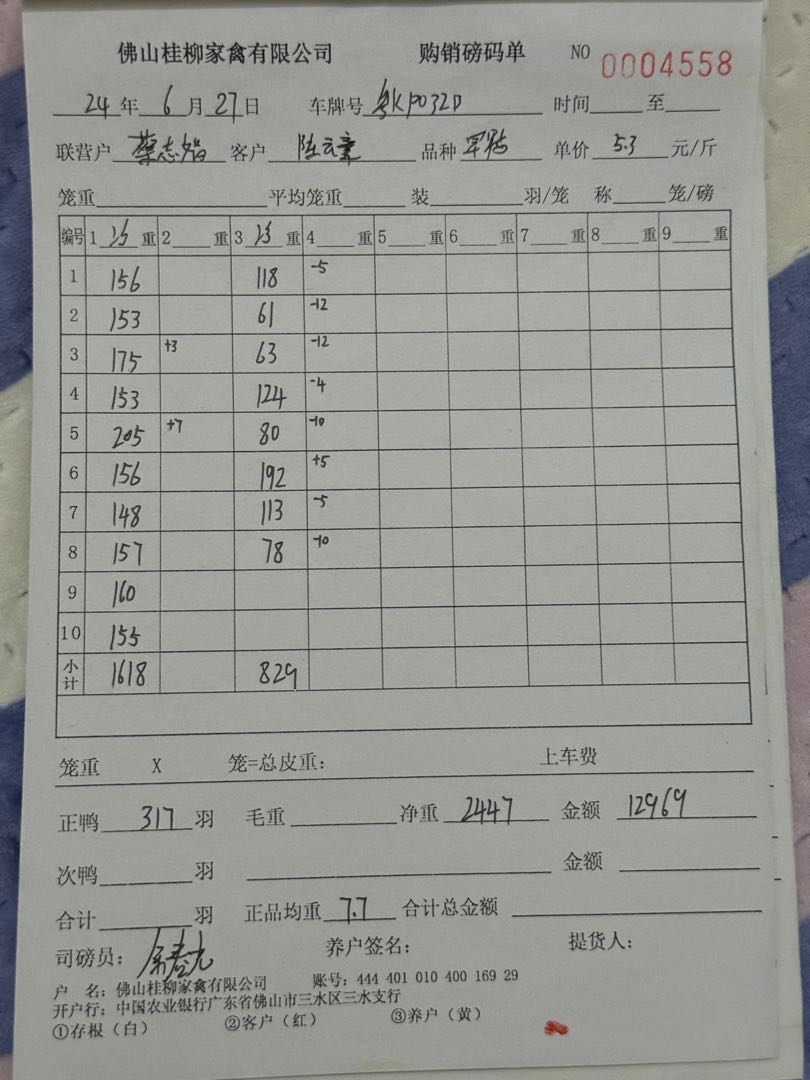 佛山桂柳家禽有限公司 购销磅码单 NO 0004558
24年 6月 27日 车牌号 粤KP032D 时间 至
联营户 蔡志 客户 陈云 品种 单价 5.3 元/斤
笼重 平均笼重 装 羽/笼 称 笼/磅
编号 1 重 2 重 3 重 4 重 5 重 6 重 7 重 8 重 9 重
1 156 118 -5
2 153 61 -12
3 175 +3 63 -12
4 153 124 -4
5 205 +7 80 -10
6 156 192 +5
7 148 113 -5
8 157 78 -10
9 160
10 155
小计 1618 829
笼重 X 笼=总皮重: 上车费
正鸭 317 羽 毛重 净重 2447 金额 12969
次鸭 羽 金额
合计 羽 正品均重 7.7 合计总金额
司磅员: 养户签名: 提货人:
户 名: 佛山桂柳家禽有限公司 账号: 444 401 010 400 169 29
开户行: 中国农业银行广东省佛山市三水区三水支行
①存根(白) ②客户(红) ③养户(黄)